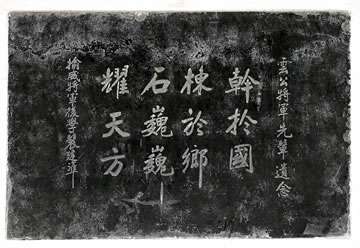 雲公將軍先輩遺念
幹於國
棟於鄉
石巍巍
耀天方
揄威將軍後學